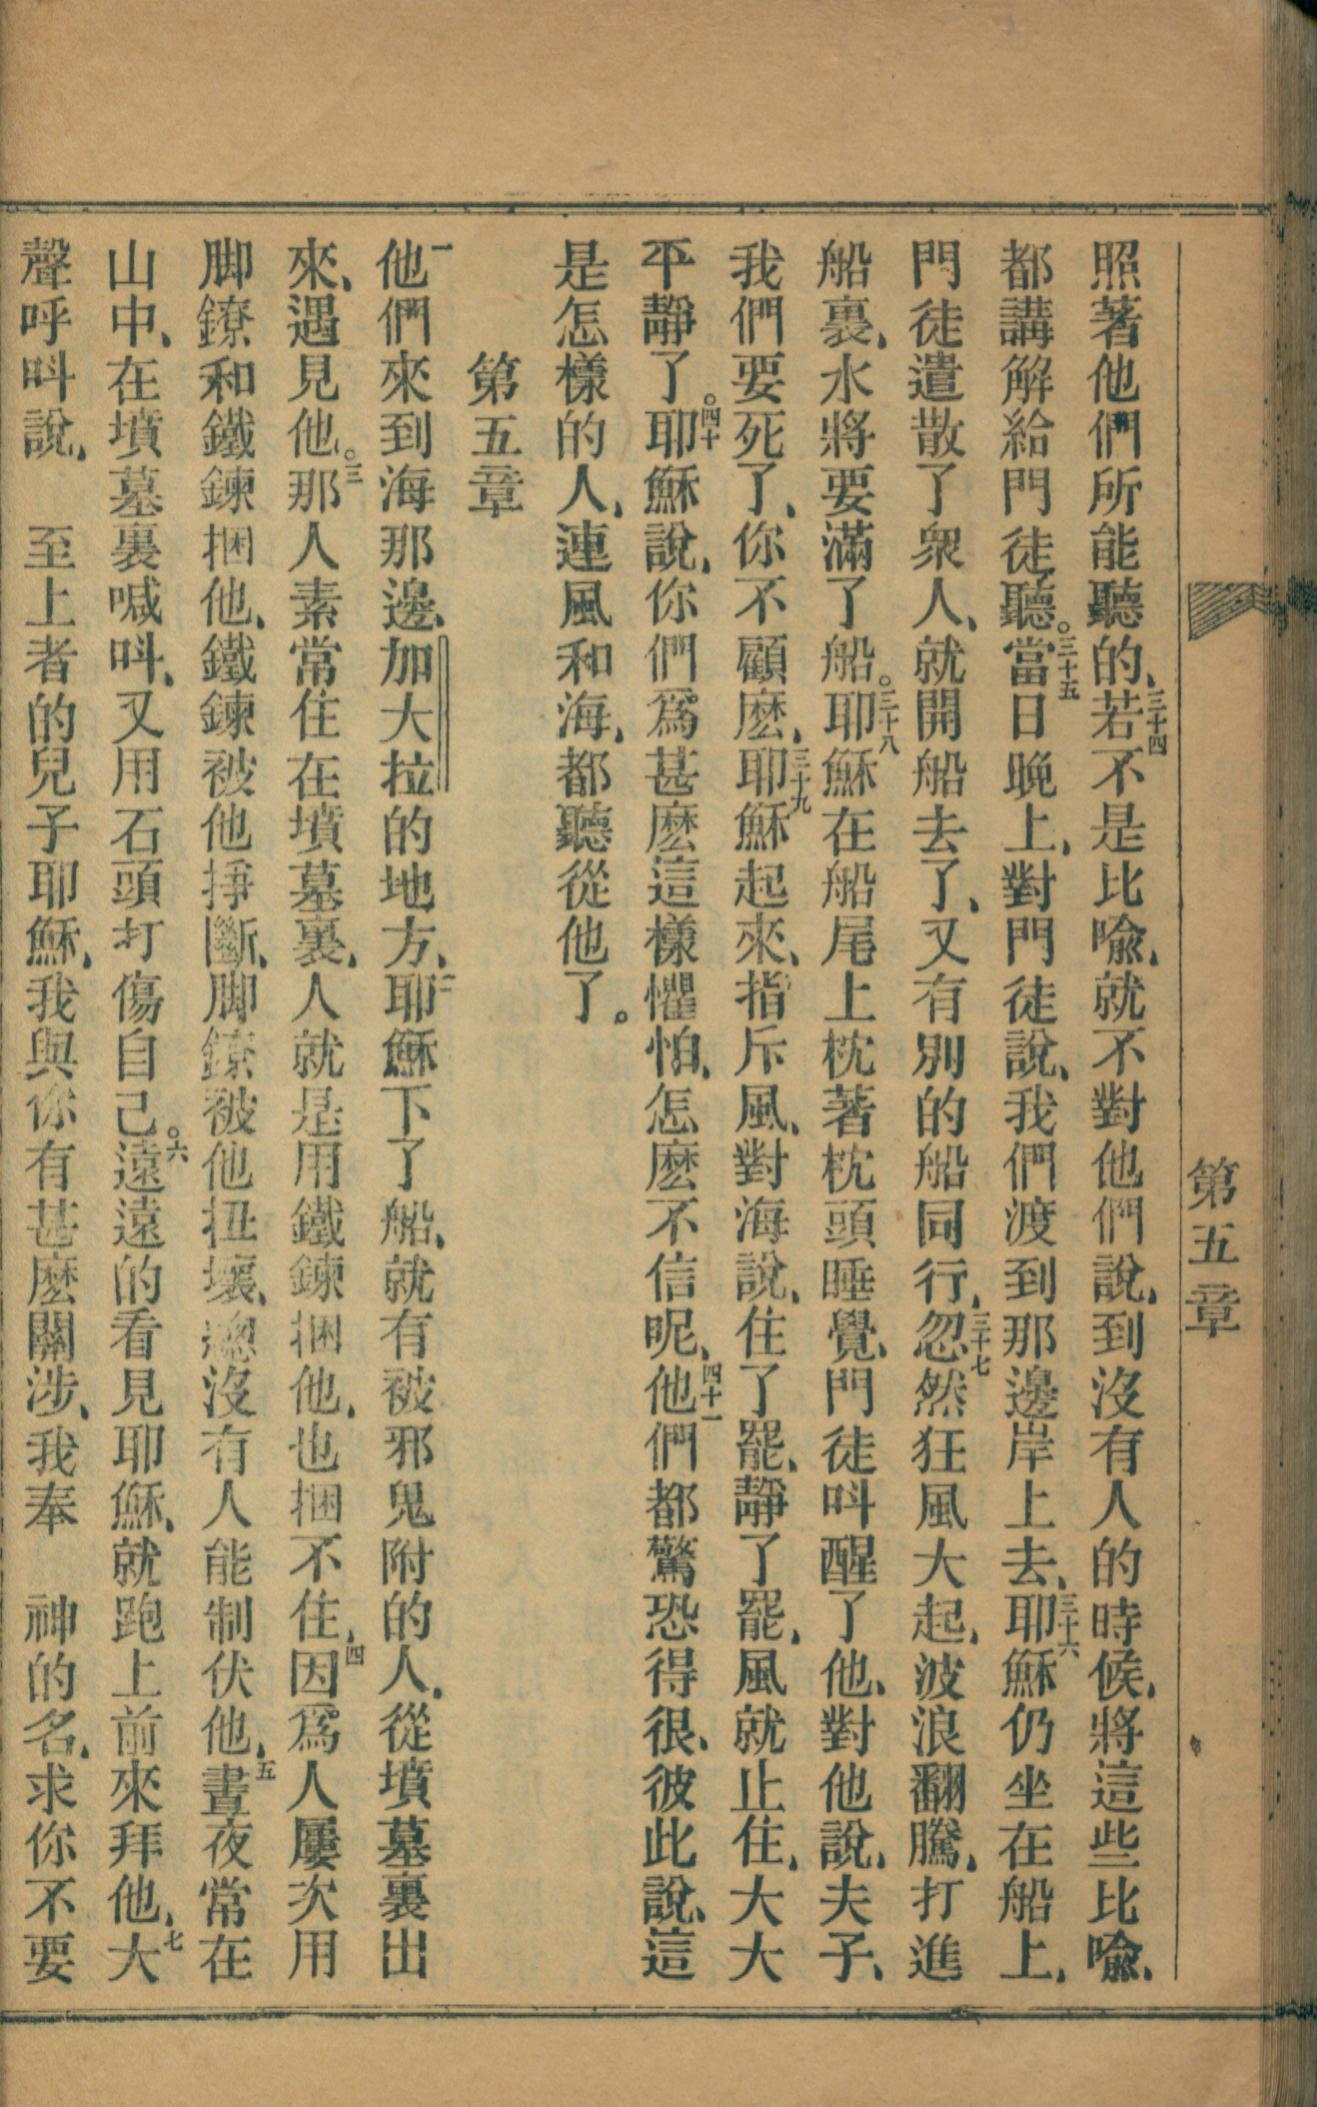 第五章
照著他們所能聽的、三十四若不是比喩、就不對他們說、到沒有人的時候、將這些比喩、
都講解給門徒聽。三十五當日晚上、對門徒說、我們渡到那邊岸上去、三十六耶穌仍坐在船上、
門徒遣散了衆人、就開船去了、又有別的船同行、三十七忽然狂風大起、波浪翻騰、打進
船裏、水將要滿了船。三十八耶穌在船尾上枕著枕頭睡覺、門徒呌醒了他、對他說、夫子、
我們要死了、你不顧麽、三十九耶穌起來、指斥風、對海說、住了罷、靜了罷、風就止住、大大
平靜了。四十耶穌說、你們爲甚麽這樣懼怕、怎麽不信呢、四十一他們都驚恐得很、彼此說、這
是怎樣的人、連風和海、都聽從他了。
第五章
一他們來到海那邊、加大拉的地方、二耶穌下了船、就有被邪鬼附的人、從墳墓裏出
來、遇見他。三那人素常住在墳墓裏、人就是用鐵鍊捆他、也捆不住、四因爲人屢次用
脚鐐和鐵鍊捆他、鐵鍊被他掙斷、脚鐐被他扭壞、總沒有人能制伏他、五晝夜常在
山中、在墳墓裏喊呌、又用石頭打傷自己。六遠遠的看見耶穌、就跑上前來拜他、七大
聲呼呌說、　至上者的兒子耶穌、我與你有甚麽關涉、我奉　神的名、求你不要